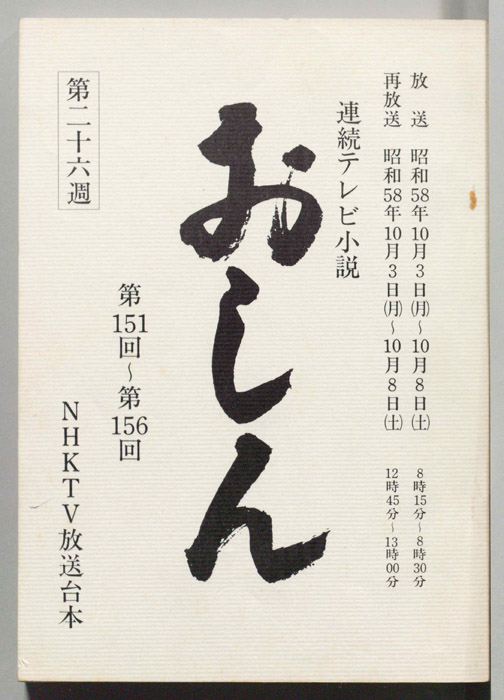 放　送　昭和58年10月3日(月)～10月8日(土)　8時15分～8時30分
再放送　昭和58年10月3日(月)～10月8日(土)　12時45分～13時00分
連続テレビ小説
おしん
第151回～第156回
第二十六週
NHKTV放送台本